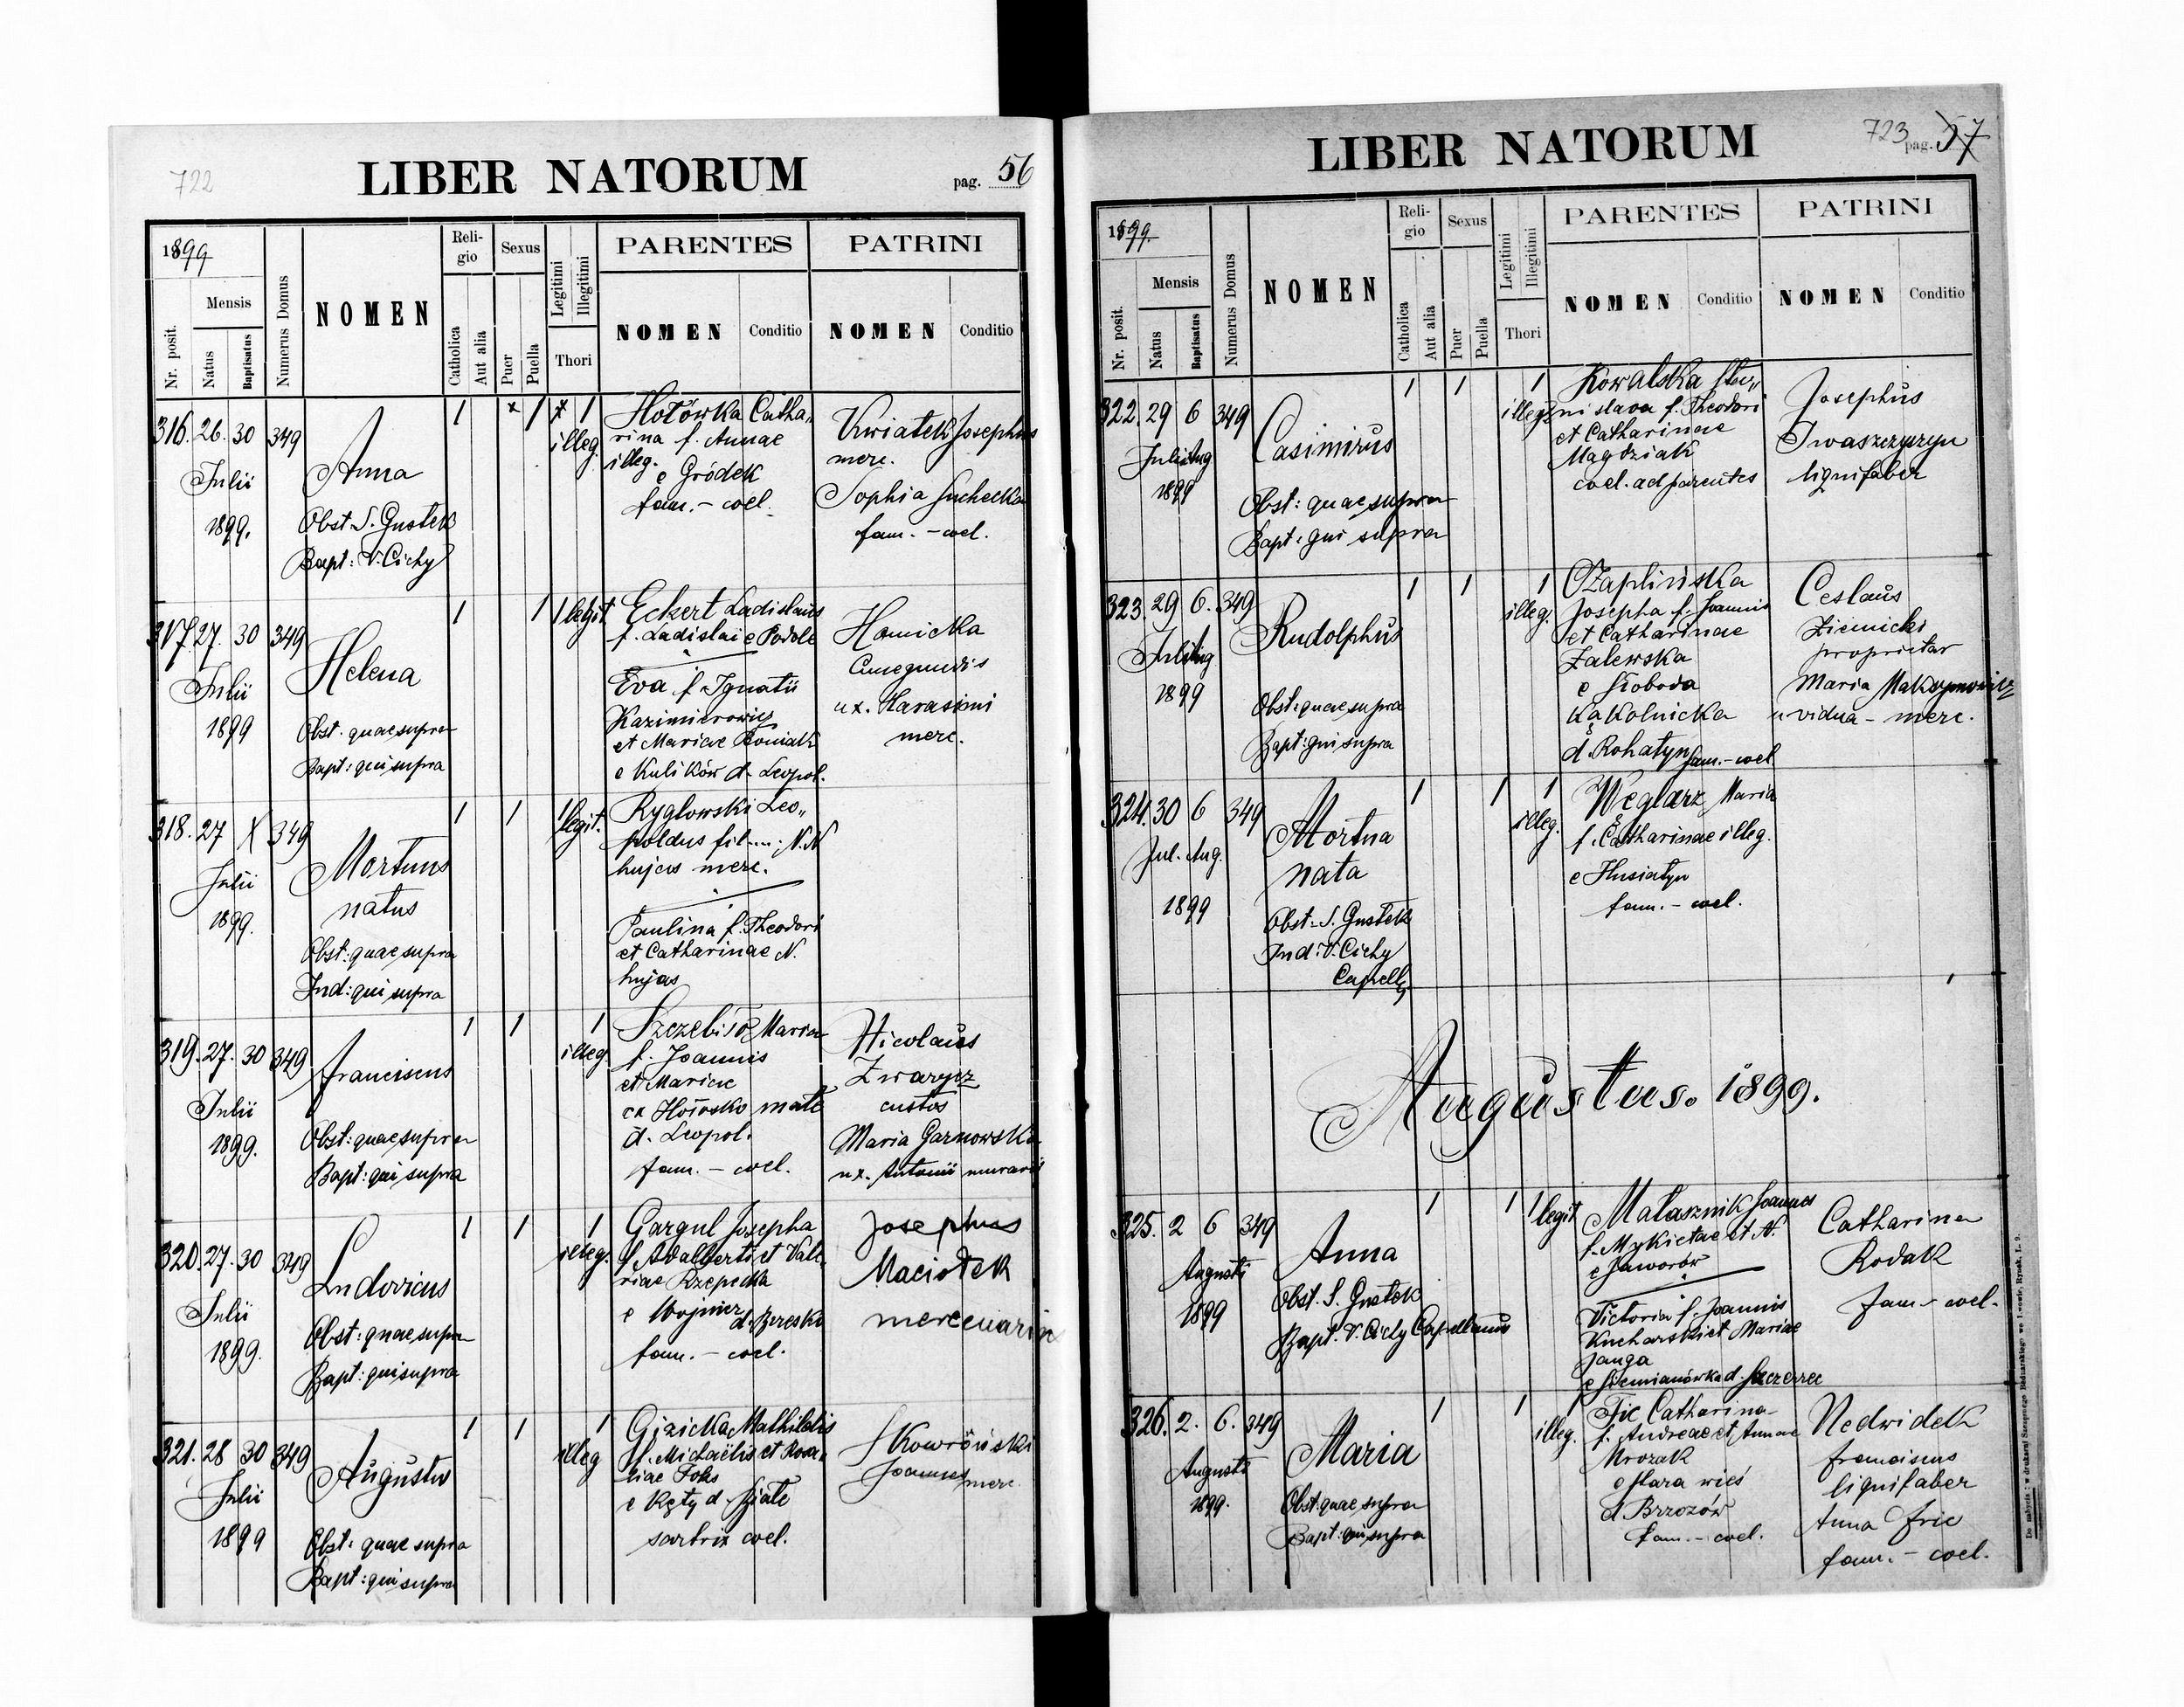 722
LIBER NATORUM
pag. 56
1899
Nr. posit.
Mensis
Natus
Baptisatus
Numerus Domus
NOMEN
Reli-
gio
Catholica
Aut alia
Sexus
Puer
Puella
Legitimi
Illegitimi
Thori
PARENTES
NOMEN
Conditio
PATRINI
NOMEN
Conditio
316. 26. 30 349
Julii
1899.
Anna
Obst. S. Gustek
Bapt: V. Cichy
1 x 1 x 1
illeg.
Hołówka Catha„
rina f. Annae
illeg.
e Gródek
fam. - coel.
Kwiatek Josephus
merc.
Sophia Suchecka
fam. - coel.
317. 27. 30 349
Julii
1899
Helena
Obst. quae supra
Bapt: qui supra
1 1 1 legit
Eckert Ladislaus
f. Ladislai e Podole
Eva f. Ignatii
Kazimierowicz
et Mariae Roniak
e Kulików d. Leopol.
Homicka
Cunegundis
ux. Harasimi
merc.
318. 27 X 349
Julii
1899.
Mortuus
natus
Obst: quae supra
Ind: qui supra
1 1 1
legit.
Ryglowski Leo„
poldus fil.... N.N
hujas merc.
Paulina f. Theodori
et Catharinae N.
hujas
319. 27. 30 349
Julii
1899.
Franciscus
Obst: quae supra
Bapt: qui supra
1 1 1
illeg.
Szczebiło Maria
f. Joannis
et Mariae
ex Hołosko małe
d. Leopol.
fam. - coel.
Nicolaus
Zwarycz
custos
Maria Garnowska
ux. Antonii murarii
320. 27. 30 349
Julii
1899.
Ludovicus
Obst: quae supra
Bapt: qui supra
1 1 1
illeg.
Gargul Josepha
f. Adalberti et Vale„
riae Rzepecka
e Wojnicz
d. Brzesko
fam. - coel.
Josephus
Maciołek
mercenarius
321. 28 30 349
Julii
1899
Augustus
Obst: quae supra
Bapt: qui supra
1 1 1
illeg
Gizicka Mathildis
f. Michaëlis et Rosa„
liae Foks
e Kęty d. Białe
sartrix coel.
Skowroński
Joannes merc.
LIBER NATORUM
723 pag. 57
1899.
Nr. posit.
Mensis
Natus
Baptisatus
Numerus Domus
NOMEN
Reli-
gio
Catholica
Aut alia
Sexus
Puer
Puella
Legitimi
Illegitimi
Thori
PARENTES
NOMEN
Conditio
PATRINI
NOMEN
Conditio
322. 29 6 349
Julii Aug
1899
Casimirus
Obst: quae supra
Bapt: qui supra
1 1 1
illeg.
Kowalska Sta„
nislava f. Theodori
et Catharinae
Magdziak
coel. ad parentes
Josephus
Iwaszczyszyn
lignifaber
323. 29 6. 349
Julii Aug
1899
Rudolphus
Obst: quae supra
Bapt: qui supra
1 1 1
illeg.
Czaplińska
Josepha f. Joannis
et Catharinae
Zalewska
e Słoboda
Kąkolnicka
d. Rohatyn fam. - coel
Ceslaus
Ziemicki
proprietar
Maria Maksymowicz
vidua - merc.
324. 30 6 349
Jul. Aug.
1899
Mortua
nata
Obst. S. Gustek
Ind: V. Cichy
Capell,
1 1 1
illeg.
Węglarz Maria
f. Catharinae illeg.
e Husiatyn
fam. - coel.
Augustus. 1899.
325. 2 6 349
Augusti
1899
Anna
Obst. S. Gustek
Bapt. V. Cichy Capellanus
1 1 1 legit
Małasznik Joannes
f. Mykietae et N.
e Jaworów
Victoria f. Joannis
Kucharski et Mariae
Janga
e Siemianówka d. Szczerzec
Catharina
Rodak
fam - coel.
326. 2. 6. 349
Augusti
1899.
Maria
Obst: quae supra
Bapt: qui supra
1 1 1
illeg.
Fic Catharina
f. Andreae et Annae
Mrozak
e Stara wieś
d. Brzozów
fam. - coel.
Nedwidek
Franciscus
lignifaber
Anna Fric
fam. - coel.